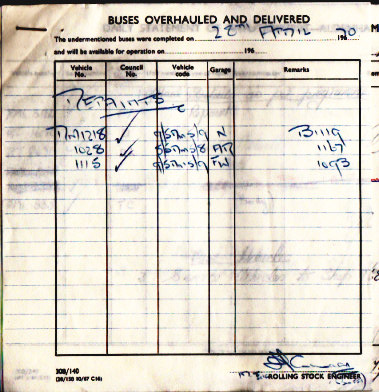 BUSES OVERHAULED AND DELIVERED
The undermentioned buses were completed on 22nd APRIL 196 70
and will be available for operation on 196
Vehicle No. Council No. Vehicle code Garage Remarks
REPAINTS
RM1218 ✓ N B1119
1028 ✓ AR 1167
1115 ✓ FW 1093
30B/140
ROLLING STOCK ENGINEER